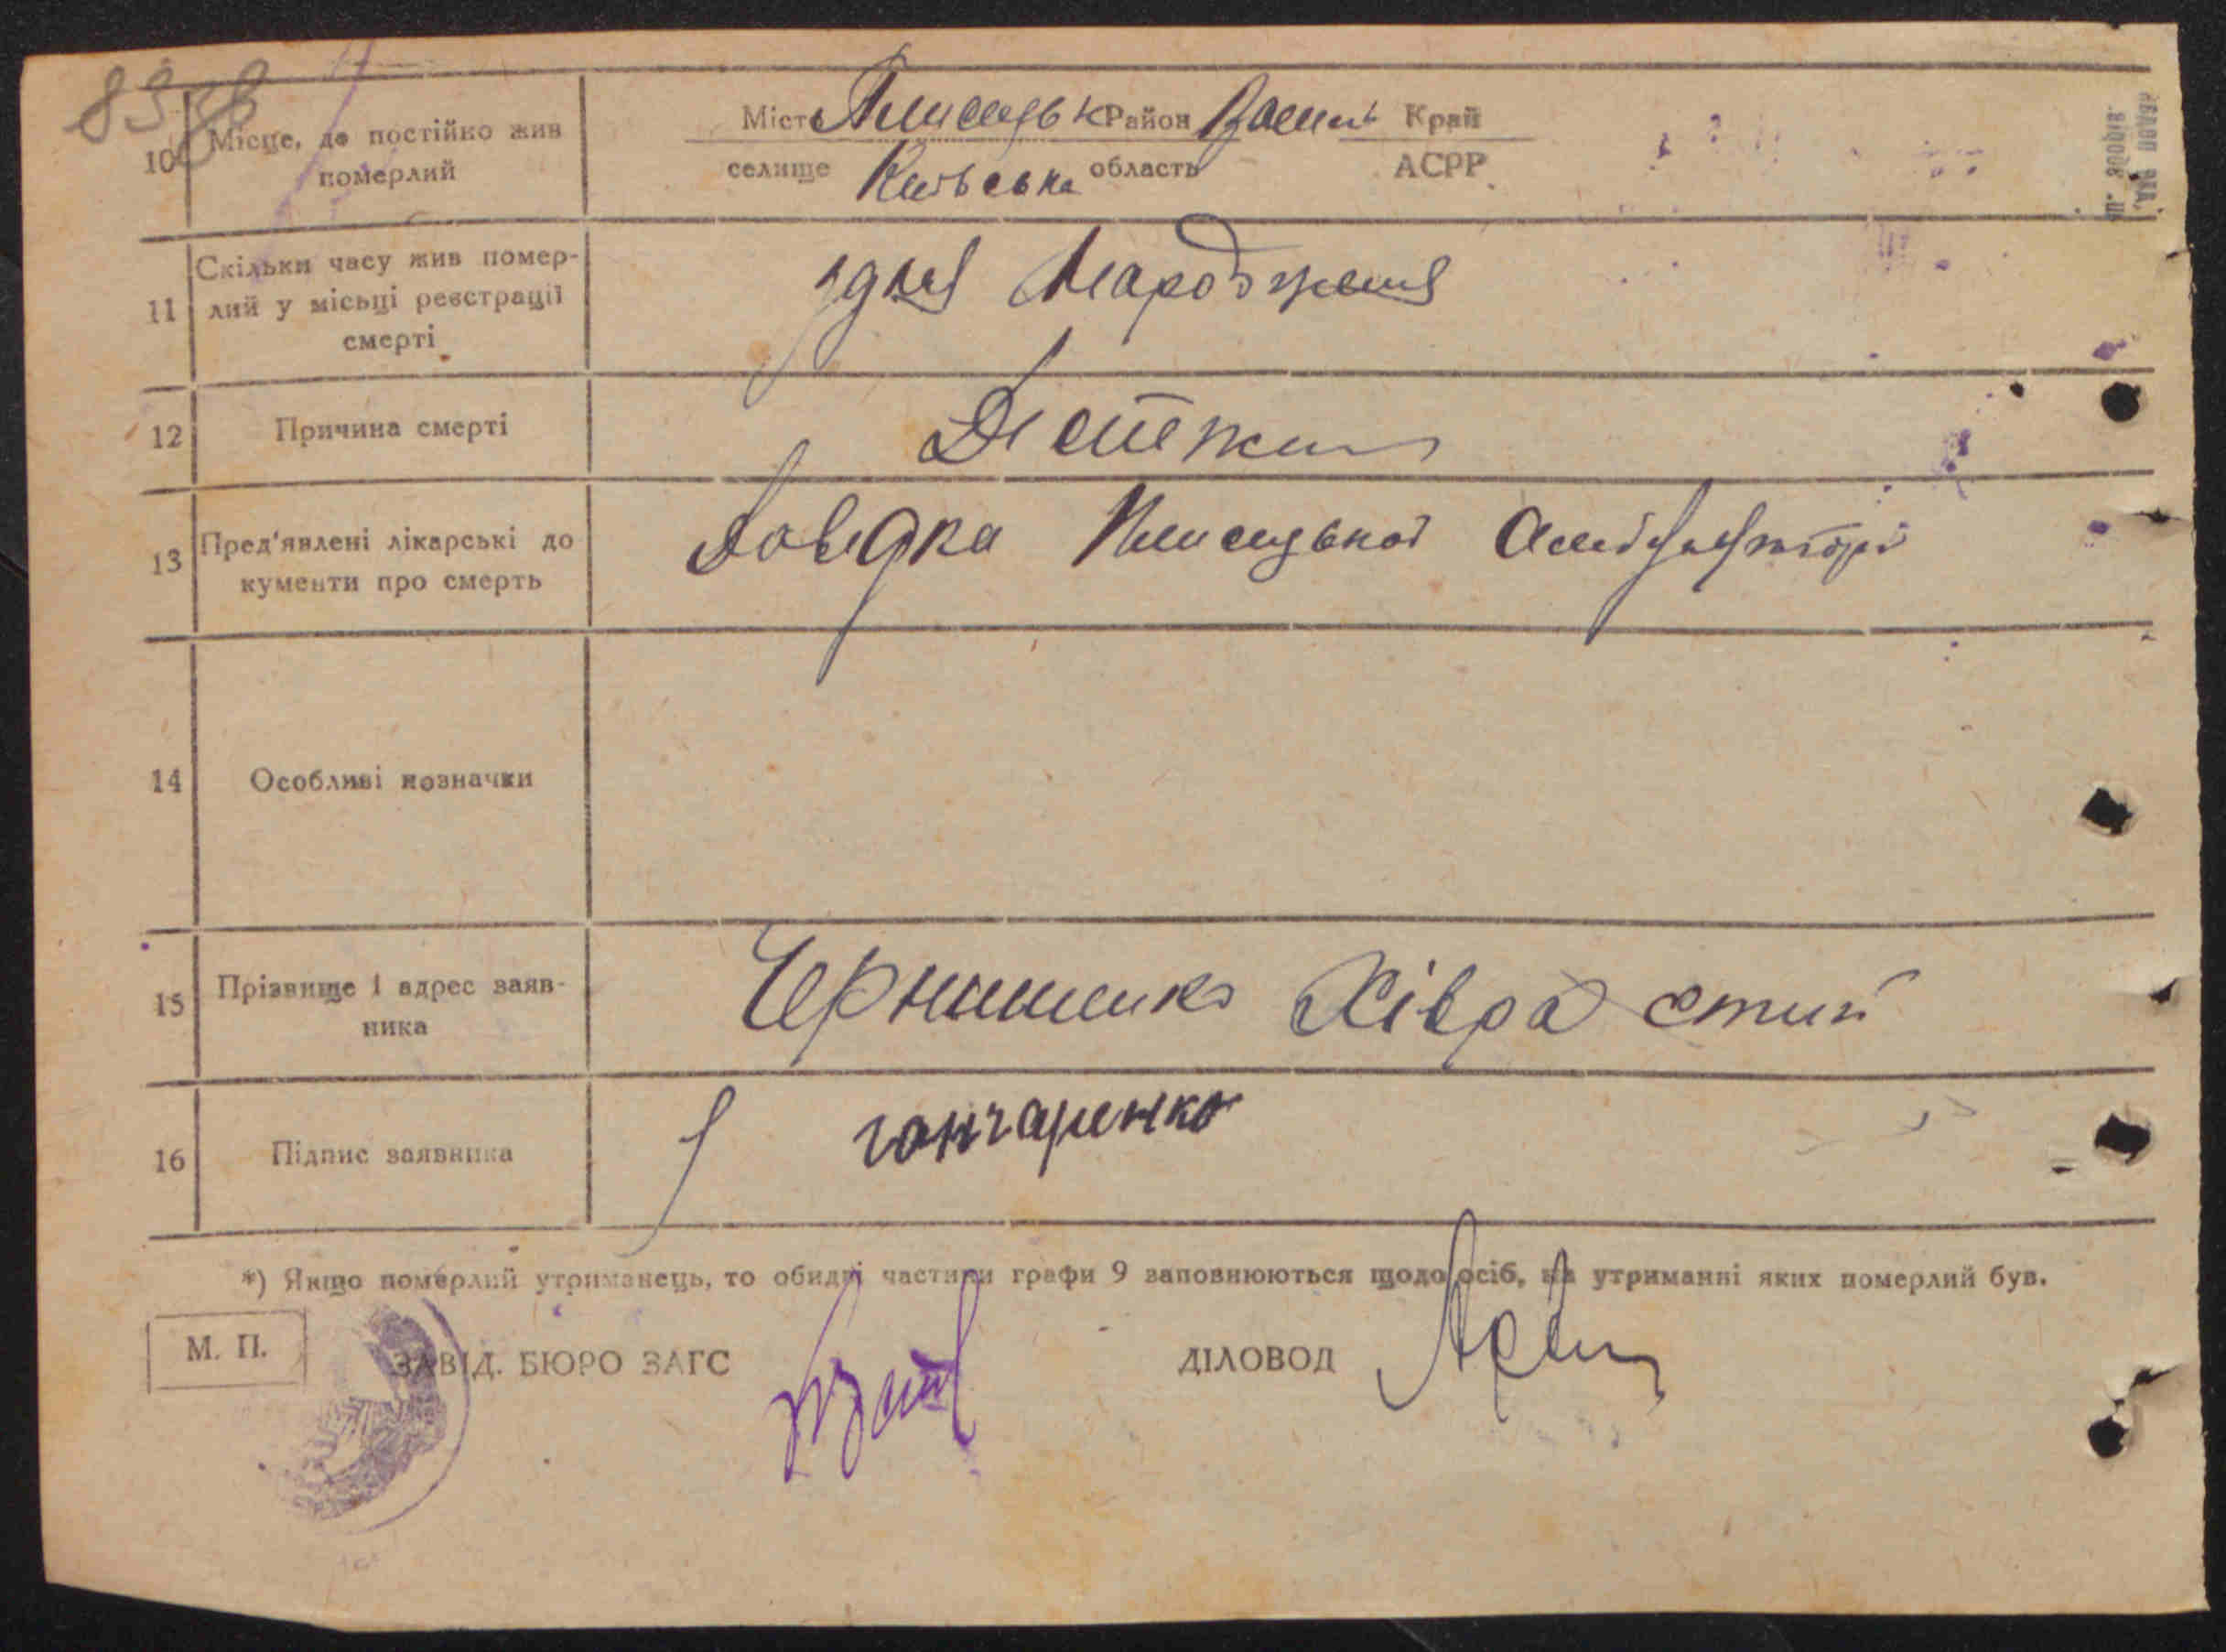 83
10 Місце, де постійно жив померлий
Місто Район Васильк Край
селище Київська область АСРР
11 Скільки часу жив помер-
лий у місьці реєстрації
смерті
з дня Народження
12 Причина смерті
13 Пред'явлені лікарські до
кументи про смерть
Довідка Плисецької Амбулаторії
14 Особливі позначки
15 Прізвище і адрес заяв-
ника
Чернишенко Хівра
16 Підпис заявника
гончаренко
*) Якщо померлий утриманець, то обидві частини графи 9 заповнюються щодо осіб, на утриманні яких померлий був.
М. П.
ЗАВІД. БЮРО ЗАГС
ДІЛОВОД